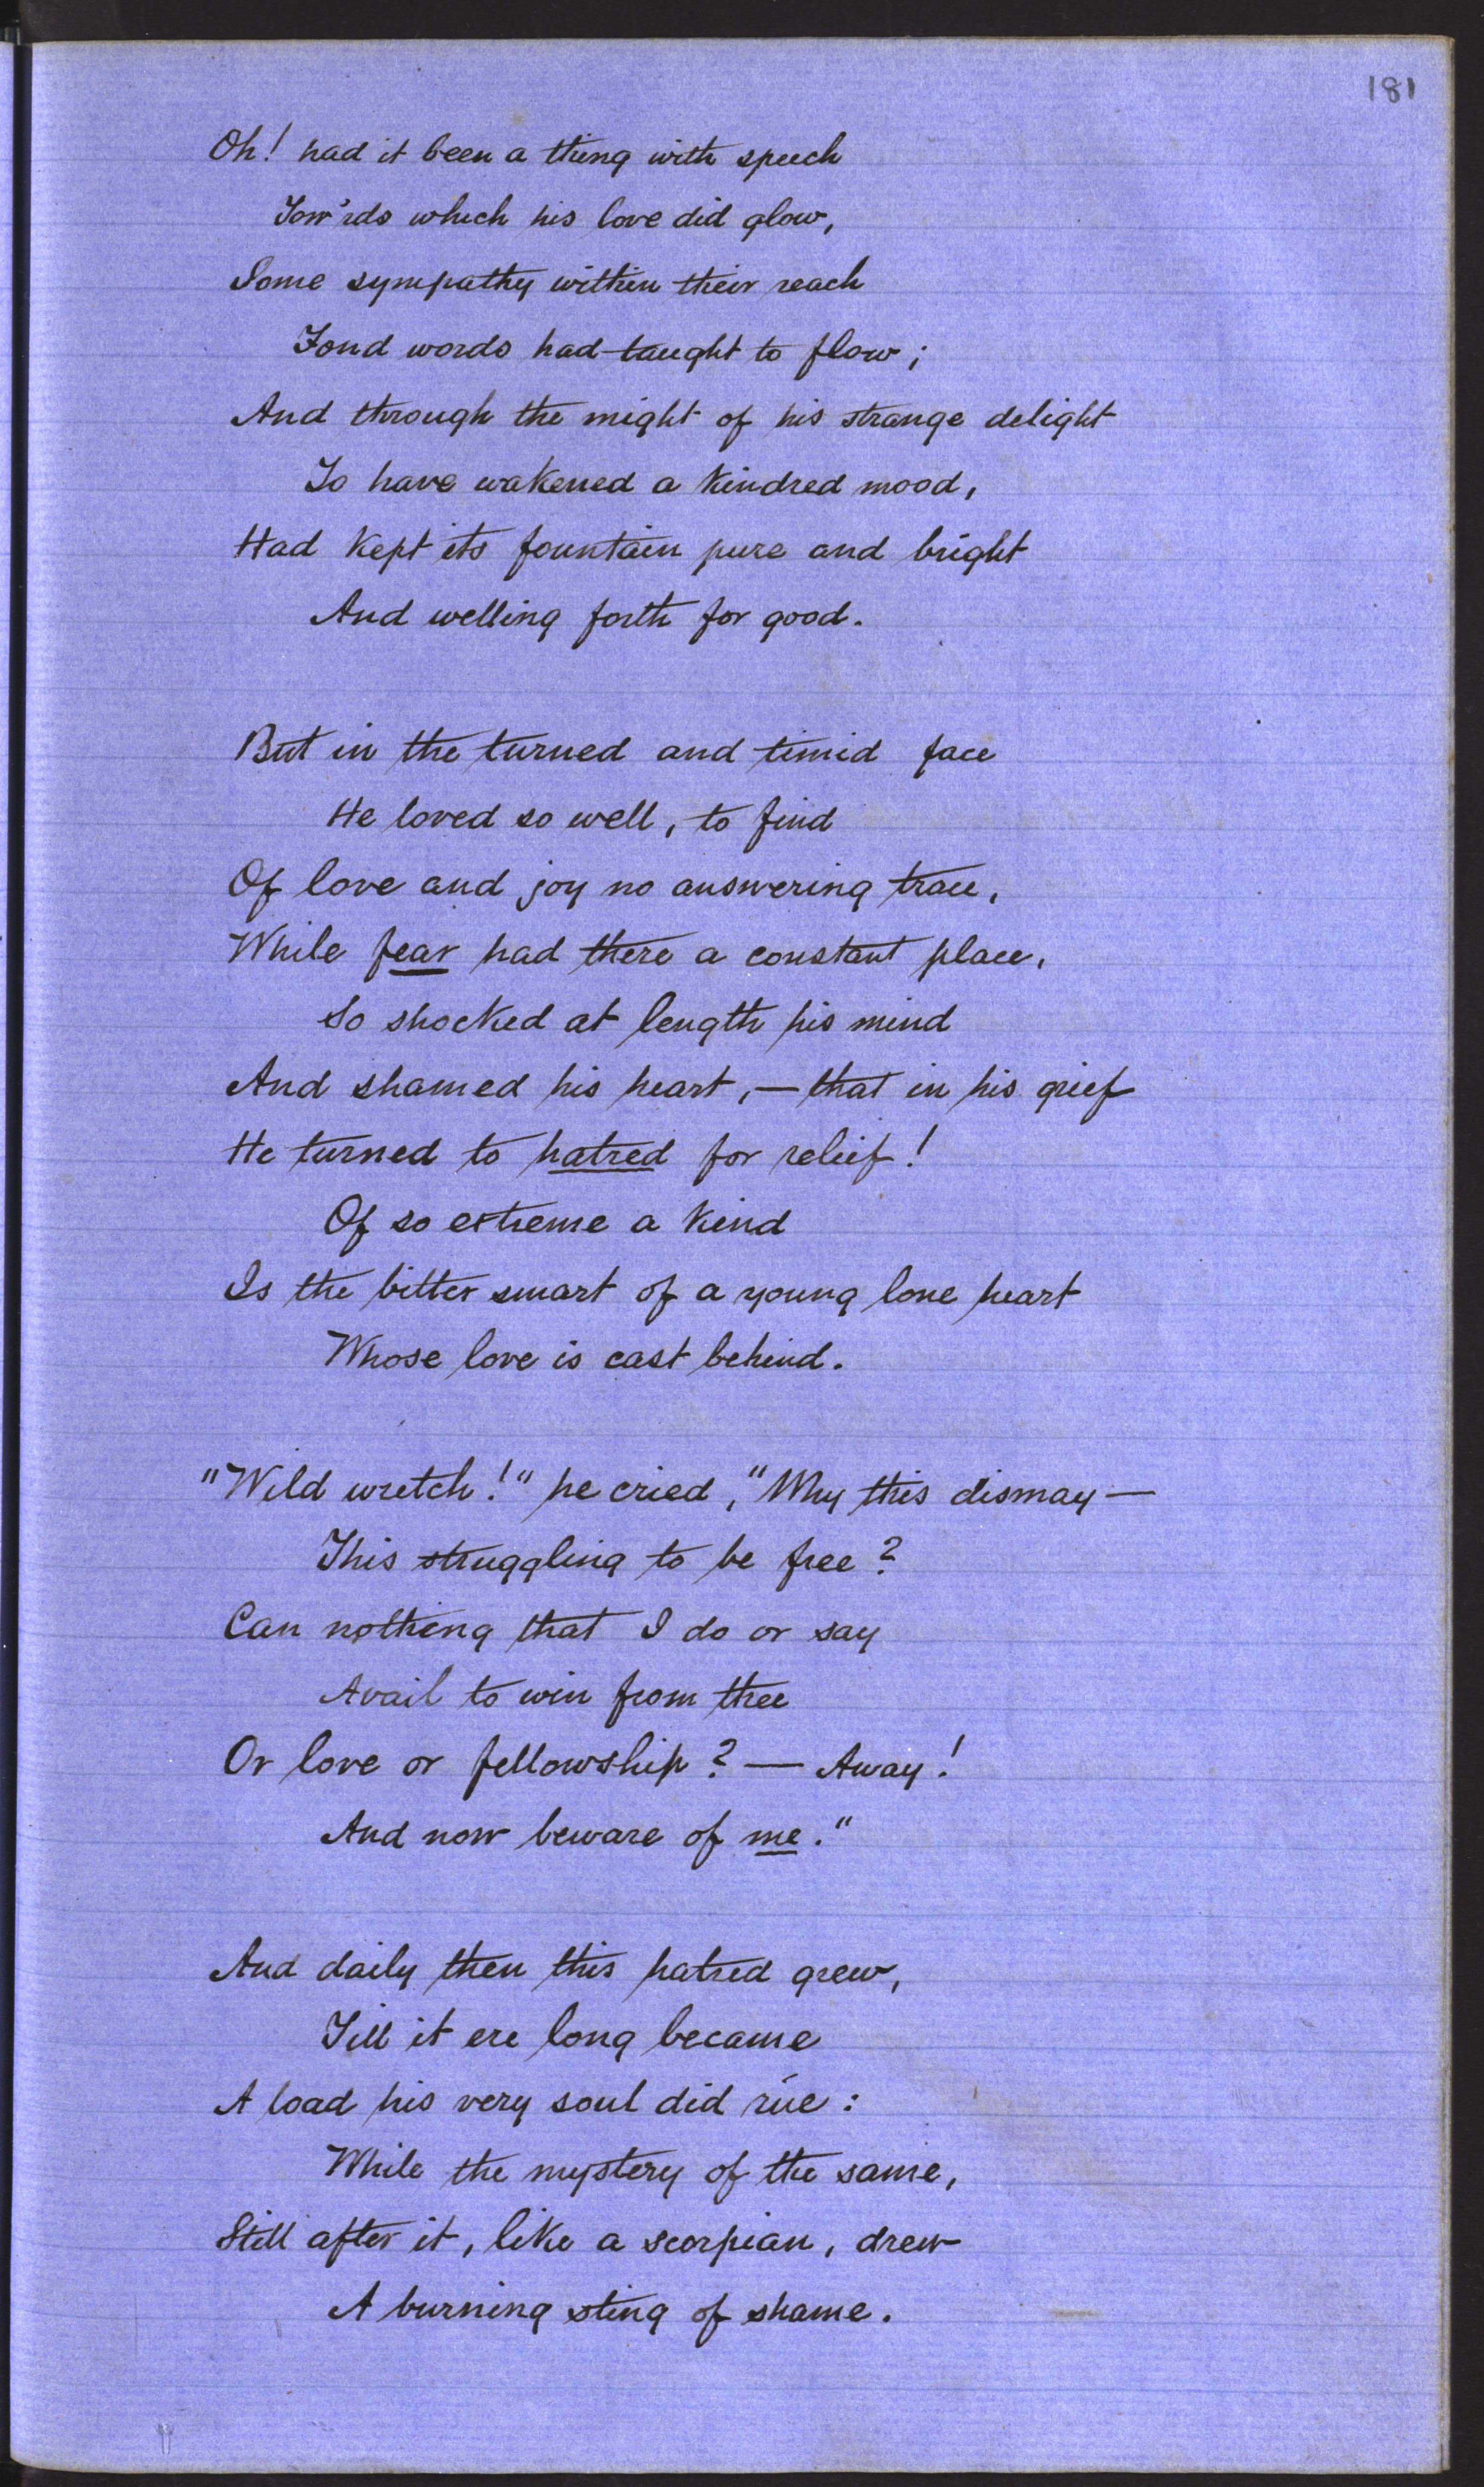 181
Oh! had it been a thing with speech
Tow'rds which his love did glow,
Some sympathy within their reach
Fond words had taught to flow;
And through the might of his strange delight
To have wakened a kindred mood,
Had kept its fountain pure and bright
And welling forth for good.
But in the turned and timid face
He loved so well, to find
Of love and joy no answering trace,
While fear had there a constant place,
So shocked at length his mind
And shamed his heart,—that in his grief
He turned to hatred for relief!
Of so extreme a kind
Is the bitter smart of a young lone heart
Whose love is cast behind.
"Wild wretch!" he cried, "Why this dismay—
This struggling to be free?
Can nothing that I do or say
Avail to win from thee
Or love or fellowship?—Away!
And now beware of me."
And daily then this hatred grew,
Till it ere long became
A load his very soul did rue:
While the mystery of the same,
Still after it, like a scorpian, drew
A burning sting of shame.